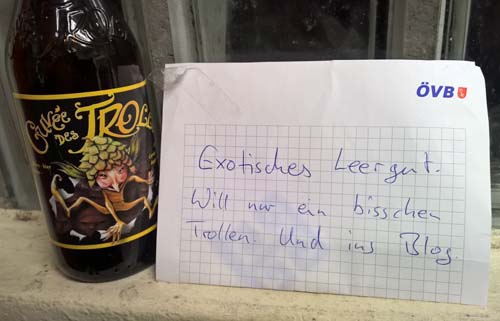 CUVÉE
DES TROLL
ÖVB
Exotisches Leergut.
Will nur ein bisschen
Trollen. Und ins Blog.